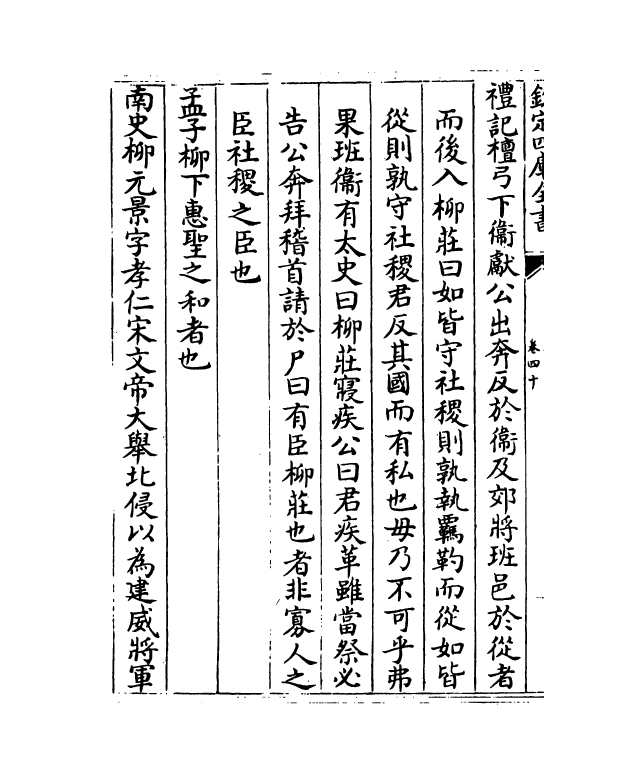 欽定四庫全書
卷四十
禮記檀弓下衞獻公出奔反於衞及郊將班邑於從者
而後入柳莊曰如皆守社稷則孰執羈靮而從如皆
從則孰守社稷君反其國而有私也毋乃不可乎弗
果班衞有太史曰柳莊寢疾公曰君疾革雖當祭必
告公奔拜稽首請於尸曰有臣柳莊也者非寡人之
臣社稷之臣也
孟子柳下惠聖之和者也
南史柳元景字孝仁宋文帝大舉北侵以為建威將軍